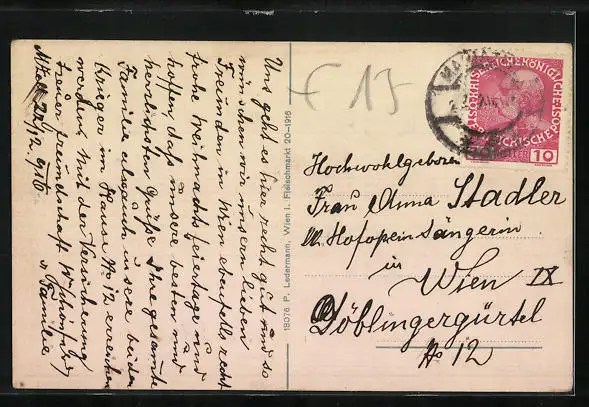 Uns geht es hier recht gut und so
wünschen wir unsern lieben
Freunden in Wien ebenfalls recht
frohe Weihnachtsfeiertage und
hoffen, daß unsere besten und
herzlichsten Grüße Ihre gesamte
Familie als auch unsere beiden
Krieger im Hause No 12 erreichen
werden. Mit der Versicherung
treuer Freundschaft
u. Familie
20/12 916.
18076 P. Ledermann, Wien I. Fleischmarkt 20-1916
F 15
KAIS. KÖNIGL.
ÖSTERREICHISCHE POST
10
Hochwohlgeboren
Frau Anna Stadler
Hofopernsängerin
in
Wien IX
Döblingergürtel
No 12